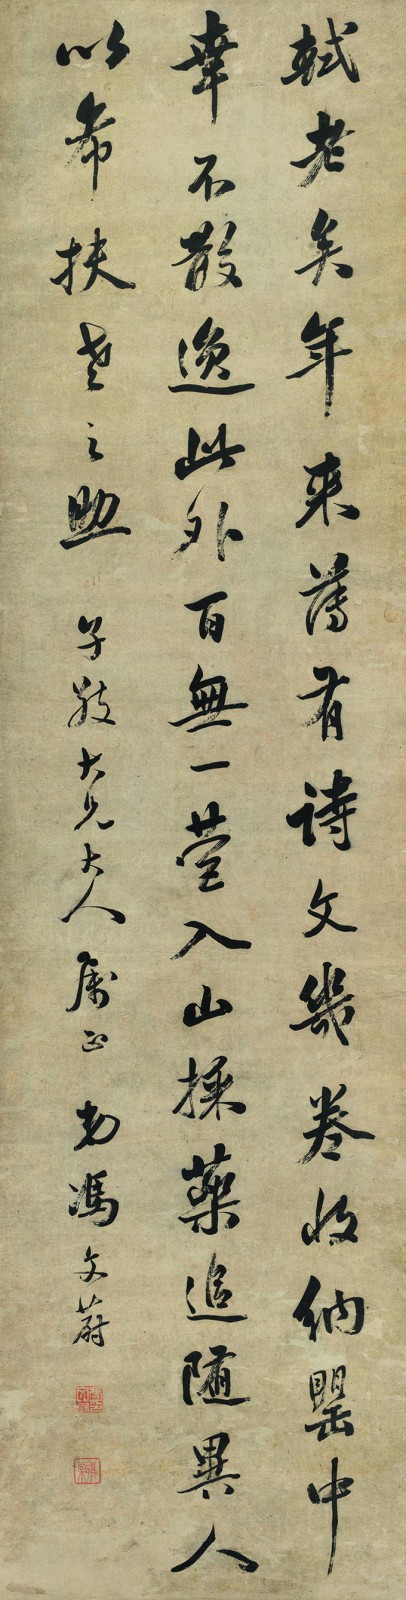 軾老矣年來舊有詩文幾卷收納甖中
幸不散逸此外百無一營入山採藥追隨異人
以希扶老之助 子敬大兄大人屬正 弟馮文蔚